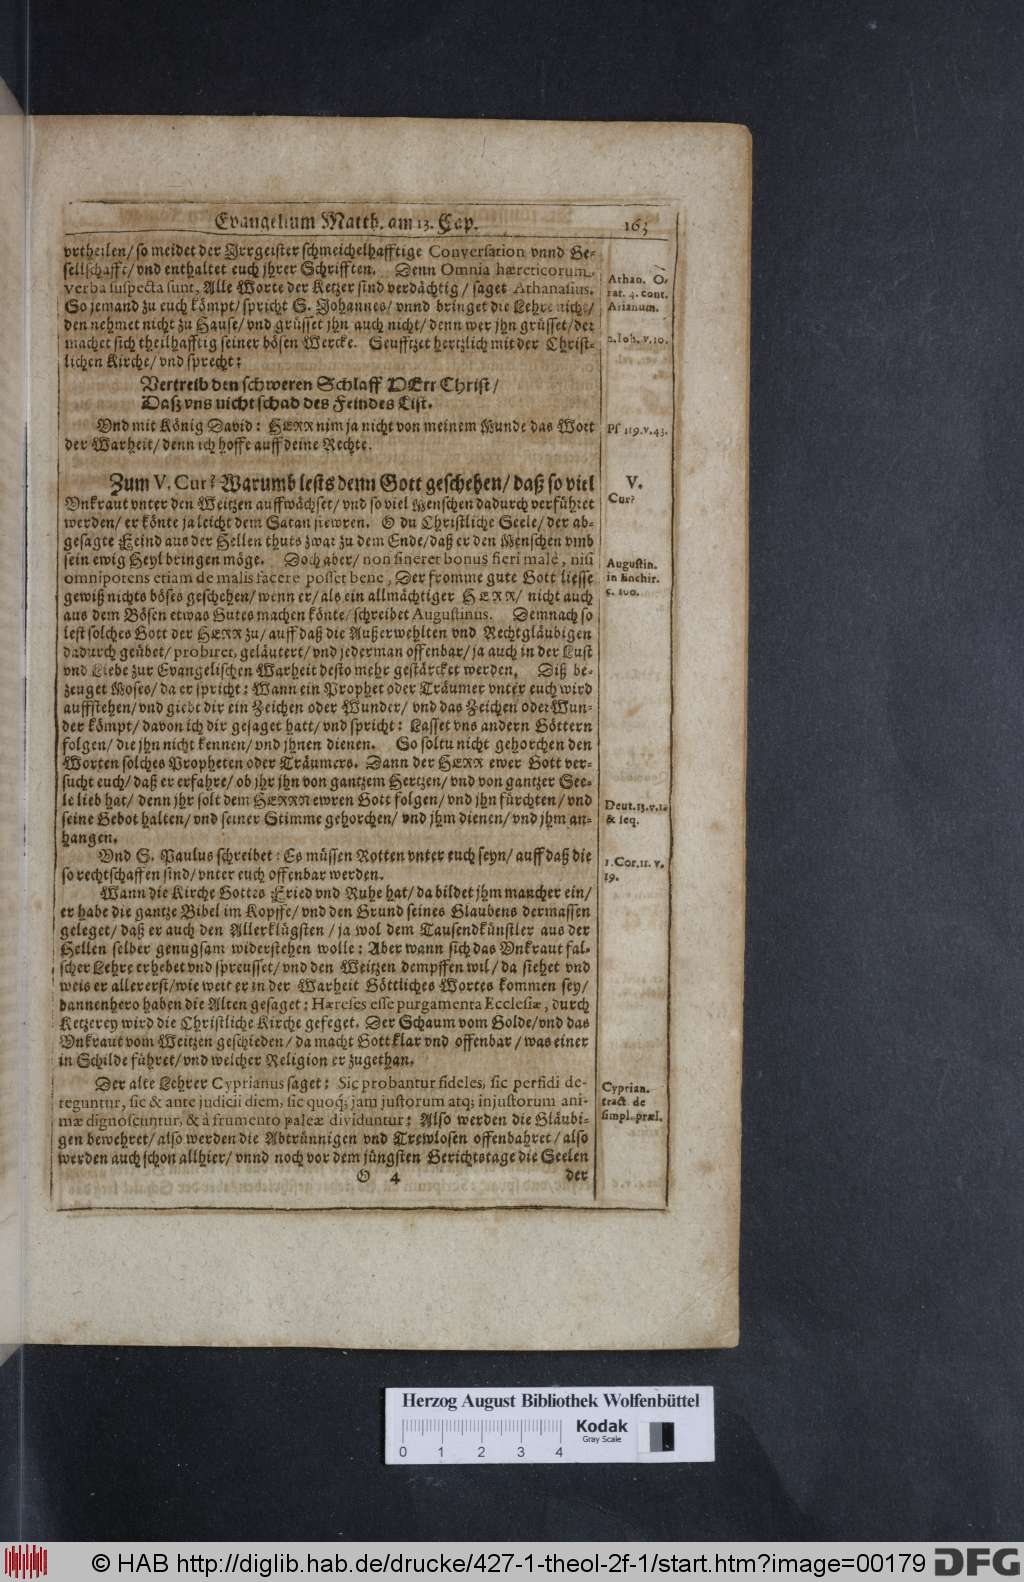 Evangelium Matth. am 13. Cap.
163
vrtheilen/ so meidet der Irrgeister schmeichelhafftige Conversation vnnd Ge-
sellschafft/ vnd enthaltet euch jhrer Schrifften. Denn Omnia hæreticorum
verba suspecta sunt, Alle Worte der Ketzer sind verdächtig/ saget Athanasius.
So jemand zu euch kömpt/ spricht S. Johannes/ vnnd bringet die Lehre nicht/
den nehmet nicht zu Hause/ vnd grüsset jhn auch nicht/ denn wer jhn grüsset/ der
machet sich theilhafftig seiner bösen Wercke. Seufftzet hertzlich mit der Christ-
lichen Kirche/ vnd sprecht:
Vertreib den schweren Schlaff HErr Christ/
Daß vns nicht schad des Feindes List.
Vnd mit König David: HERR nim ja nicht von meinem Munde das Wort
der Warheit/ denn ich hoffe auff deine Rechte.
Athan. O-
rat. 4. cont.
Arianum.
2. Ioh. v. 10.
Ps 119. v. 43.
Zum V. Cur? Warumb lests denn Gott geschehen/ daß so viel
Vnkraut vnter den Weitzen auffwächset/ vnd so viel Menschen dadurch verführet
werden/ er könte ja leicht dem Satan stewren. O du Christliche Seele/ der ab-
gesagte Feind aus der Hellen thuts zwar zu dem Ende/ daß er den Menschen vmb
sein ewig Heyl bringen möge. Doch aber/ non sineret bonus fieri malè, nisi
omnipotens etiam de malis facere posset bene, Der fromme gute Gott liesse
gewiß nichts böses geschehen/ wenn er/ als ein allmächtiger HERR/ nicht auch
aus dem Bösen etwas Gutes machen könte/ schreibet Augustinus. Demnach so
lest solches Gott der HERR zu/ auff daß die Außerwehlten vnd Rechtgläubigen
dadurch geübet/ probiret, geläutert/ vnd jederman offenbar/ ja auch in der Lust
vnd Liebe zur Evangelischen Warheit desto mehr gestärcket werden. Diß be-
zeuget Moses/ da er spricht: Wann ein Prophet oder Träumer vnter euch wird
auffstehen/ vnd giebt dir ein Zeichen oder Wunder/ vnd das Zeichen oder Wun-
der kömpt/ davon ich dir gesaget hatt/ vnd spricht: Lasset vns andern Göttern
folgen/ die jhn nicht kennen/ vnd jhnen dienen. So soltu nicht gehorchen den
Worten solches Propheten oder Träumers. Dann der HERR ewer Gott ver-
sucht euch/ daß er erfahre/ ob jhr jhn von gantzem Hertzen/ vnd von gantzer See-
le lieb hat/ denn jhr solt dem HERRN ewren Gott folgen/ vnd jhn fürchten/ vnd
seine Gebot halten/ vnd seiner Stimme gehorchen/ vnd jhm dienen/ vnd jhm an-
hangen.
Vnd S. Paulus schreibet: Es müssen Rotten vnter euch seyn/ auff daß die
so rechtschaffen sind/ vnter euch offenbar werden.
Wann die Kirche Gottes Fried vnd Ruhe hat/ da bildet jhm mancher ein/
er habe die gantze Bibel im Kopffe/ vnd den Grund seines Glaubens dermassen
geleget/ daß er auch den Allerklügsten/ ja wol dem Tausendkünstler aus der
Hellen selber genugsam widerstehen wolle: Aber wann sich das Vnkraut fal-
scher Lehre erhebet vnd spreusset/ vnd den Weitzen dempffen wil/ da siehet vnd
weis er allererst/ wie weit er in der Warheit Göttliches Wortes kommen sey/
dannenhero haben die Alten gesaget: Hæreses esse purgamenta Ecclesiæ, durch
Ketzerey wird die Christliche Kirche gefeget. Der Schaum vom Golde/ vnd das
Vnkraut vom Weitzen geschieden/ da macht Gott klar vnd offenbar/ was einer
in Schilde führet/ vnd welcher Religion er zugethan.
Der alte Lehrer Cyprianus saget: Sic probantur fideles, sic perfidi de-
teguntur, sic & ante judicii diem, sic quoq; jam justorum atq; injustorum ani-
mæ dignoscuntur, & à frumento paleæ dividuntur: Also werden die Gläubi-
gen bewehret/ also werden die Abtrünnigen vnd Trewlosen offenbahret/ also
werden auch schon allhier/ vnnd noch vor dem jüngsten Gerichtstage die Seelen
O 4
der
V.
Cur?
Augustin.
in Enchir.
c. 100.
Deut. 13. v. 1.
& seq.
1. Cor. 11. v.
19.
Cyprian.
tract. de
simpl. præl.
Herzog August Bibliothek Wolfenbüttel
Kodak
Gray Scale
0 1 2 3 4
© HAB http://diglib.hab.de/drucke/427-1-theol-2f-1/start.htm?image=00179
DFG